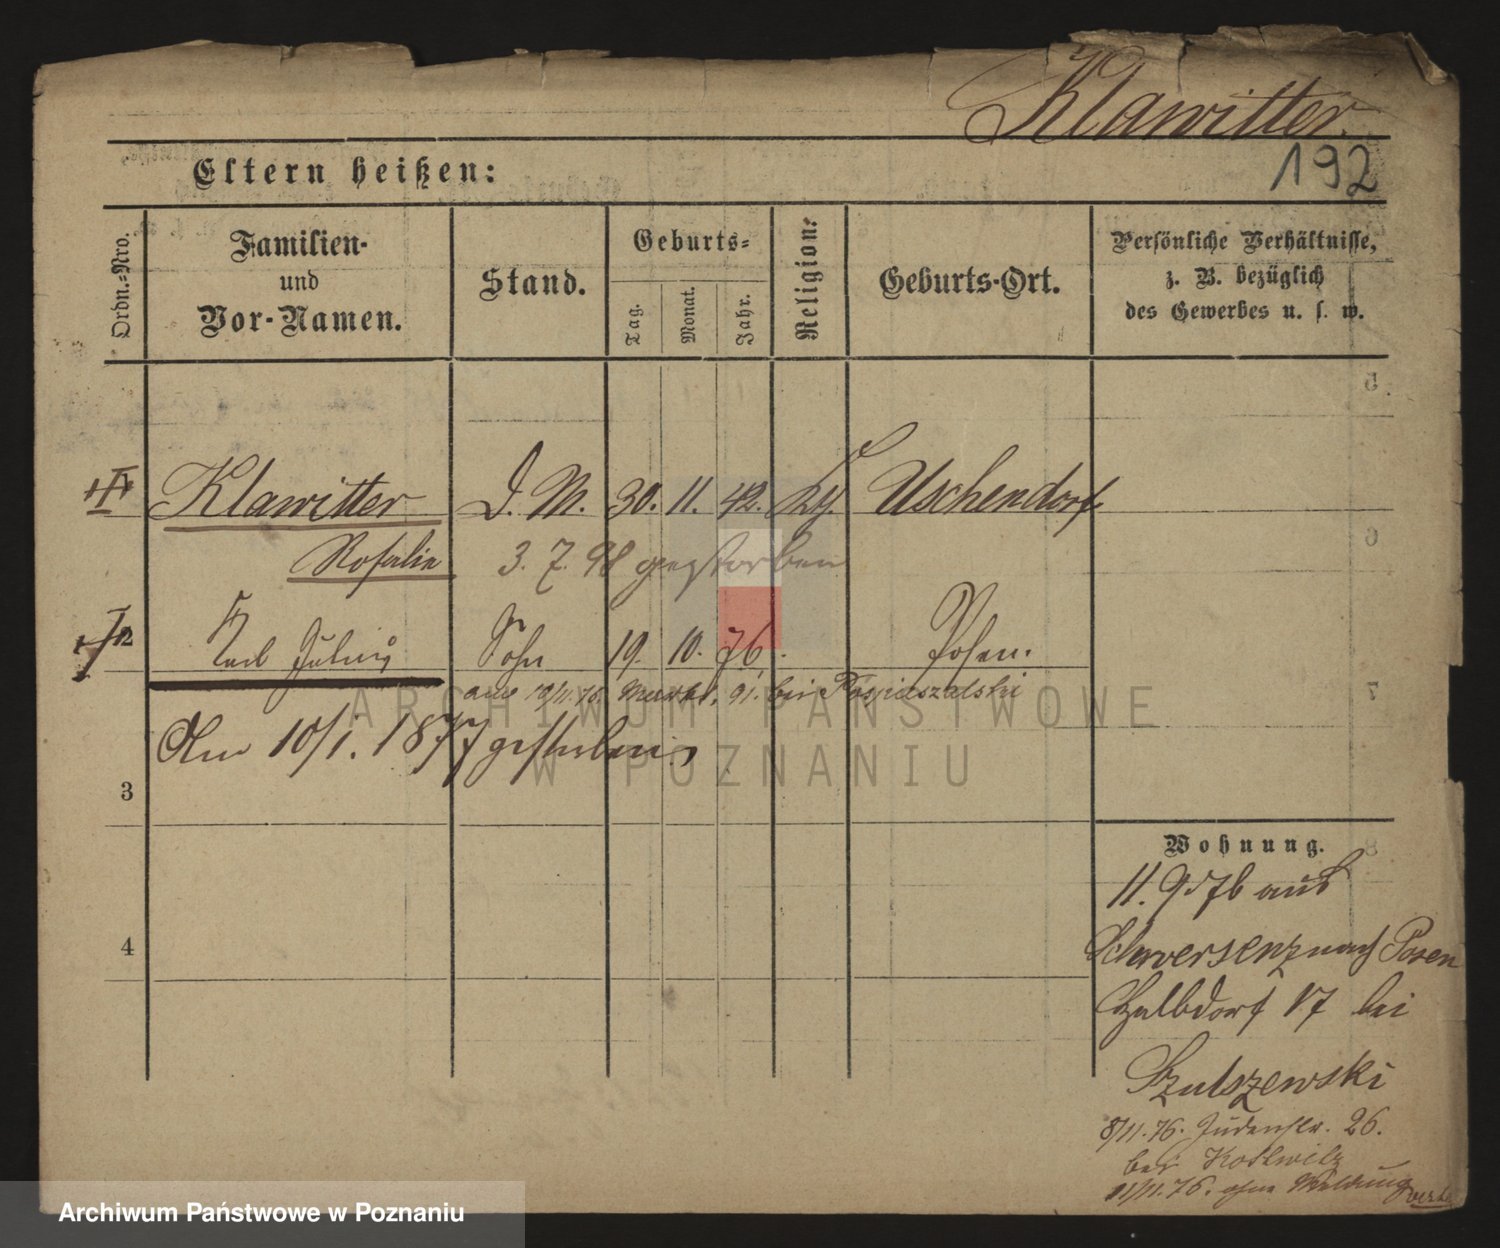 Klawitter.
192
Eltern heißen:
Ordn.-Nro.
Familien-
und
Vor-Namen.
Stand.
Geburts-
Tag.
Monat.
Jahr.
Religion:
Geburts-Ort.
Persönliche Verhältnisse,
z. B. bezüglich
des Gewerbes u. s. w.
Klawitter D. M. 30. 11. 42. Uschendorf
Rosalie 3. 7. 98 gestorben
2 Karl Julius Sohn 19. 10. 76. Posen.
91. bei
Am 10/1. 1877 gestorben
3
4
Wohnung.
11. 9. 76 aus
Schwersenz nach Posen
Halbdorf 17 bei
Szulszewski
8/11. 76. Judenstr. 26.
bei
11/11. 76. ohne Meldung
ARCHIWUM PAŃSTWOWE
W POZNANIU
Archiwum Państwowe w Poznaniu